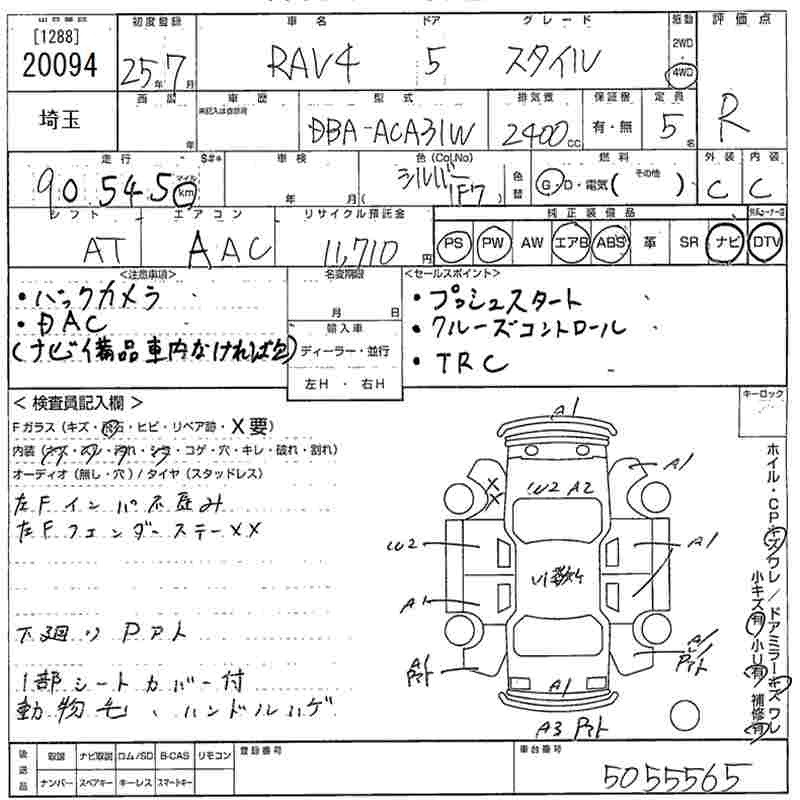 出品番号 初度登録 車名 ドア グレード 駆動 評価点
[1288]
20094
25年7月 RAV4 5 スタイル 2WD 4WD R
埼玉
車歴 型式 排気量 保証書 定員
未記入は自家用
年 DBA-ACA31W 2400cc 有・無 5名
走行 S#* 車検 色(Col,No) 燃料 外装 内装
90,545 マイル km 年 月 シルバー 1F7 色替 G・D・電気(その他) C C
シフト エアコン リサイクル預託金 純正装備品
AT AAC 11,710円 PS PW AW エアB ABS 革 SR ナビ DTV
<注意事項> 名変期限 <セールスポイント>
・バックカメラ ・プッシュスタート
・DAC 月 日 ・クルーズコントロール
(ナビ備品車内なければ欠) 輸入車 ・TRC
ディーラー・並行
左H ・ 右H
キーロック
< 検査員記入欄 >
Fガラス(キズ・飛石・ヒビ・リペア跡・X要)
内装(キズ・スレ・汚れ・シミ・コゲ・穴・キレ・破れ・割れ)
オーディオ(無し・穴)/タイヤ(スタッドレス)
左Fインパネ歪み
左FフェンダーステーXX
下廻りPアト
1部シートカバー付
動物毛、ハンドルハゲ
A1
A1
X
X
W2 A2
W2
A1
A1
A1
Pアト
A1
Pアト
A1
A3 Pアト
ホイル・CPキズワレ/ドアミラーキズワレ
小キズ有 小U有 補修有
後送品 取説 ナビ取説 ロム/SD B-CAS リモコン 登録番号 車台番号
ナンバー スペアキー キーレス スマートキー
5055565